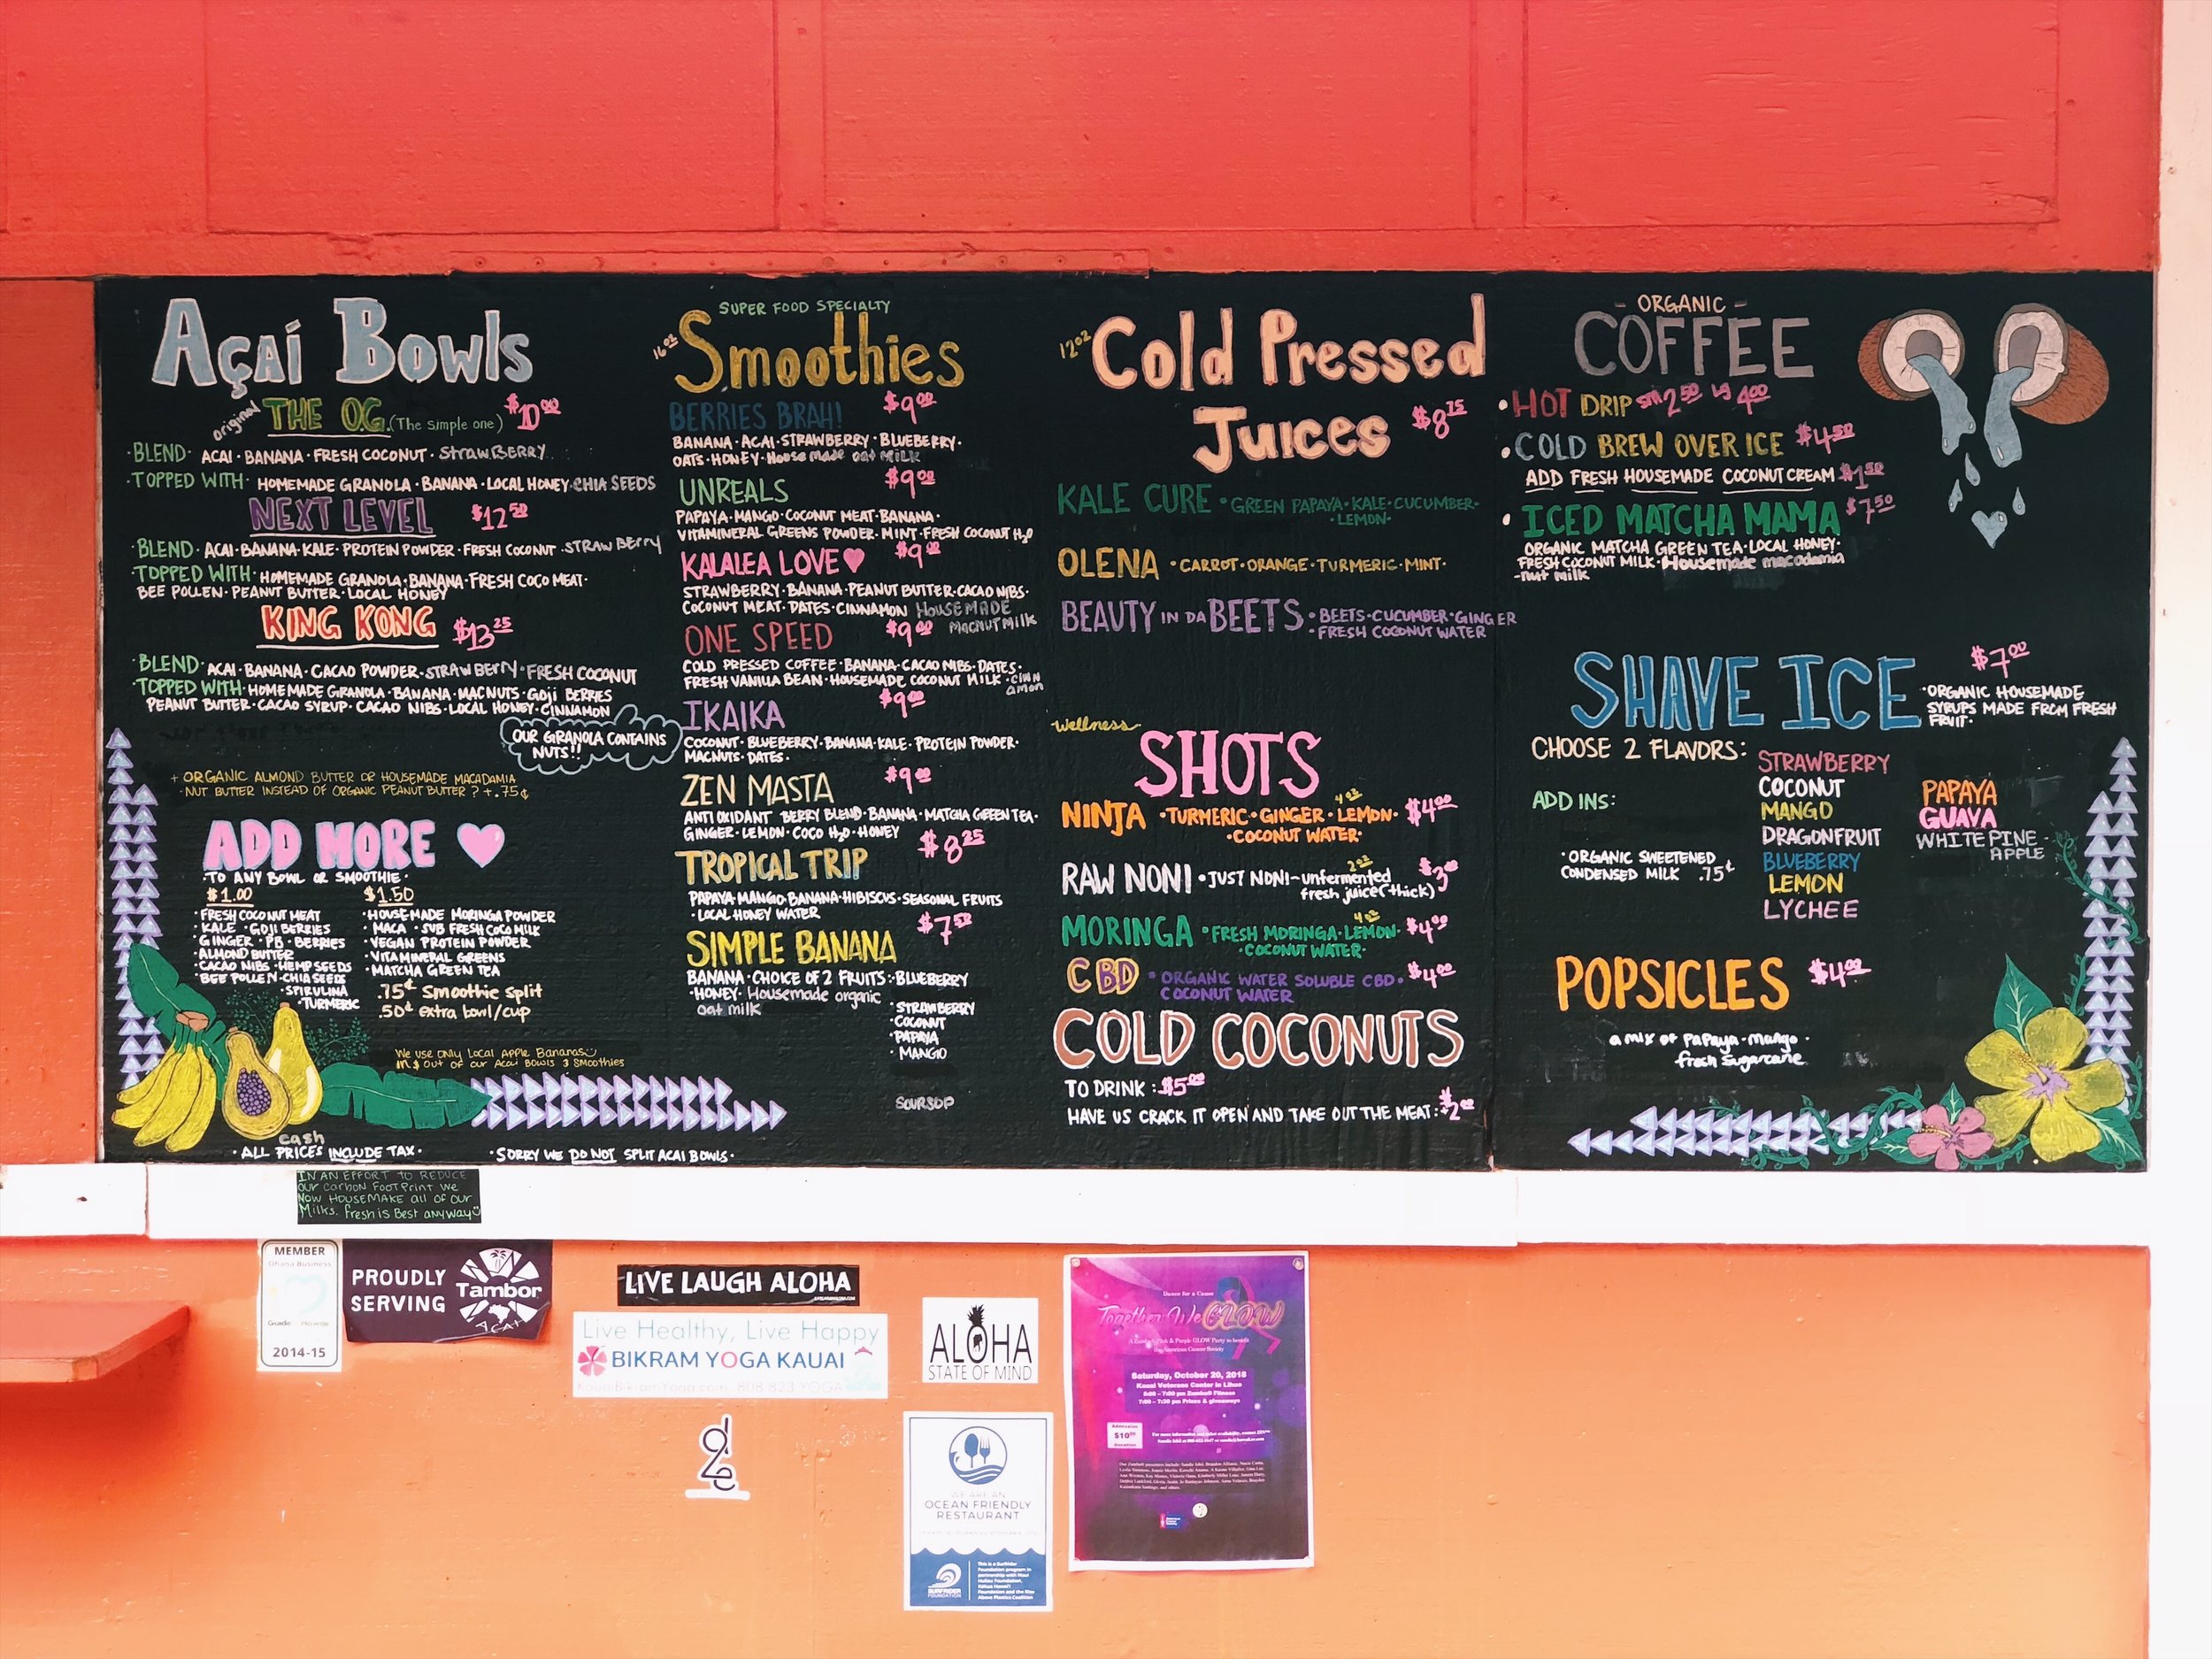 Açaí Bowls
original THE OG. (The Simple one) $10.00
·BLEND· ACAI·BANANA·FRESH COCONUT·STRAWBERRY
·TOPPED WITH· HOMEMADE GRANOLA·BANANA·LOCAL HONEY·CHIA SEEDS
NEXT LEVEL $12.50
·BLEND· ACAI·BANANA·KALE·PROTEIN POWDER·FRESH COCONUT·STRAWBERRY
·TOPPED WITH· HOMEMADE GRANOLA·BANANA·FRESH COCO MEAT·
BEE POLLEN·PEANUT BUTTER·LOCAL HONEY
KING KONG $13.25
·BLEND· ACAI·BANANA·CACAO POWDER·STRAWBERRY·FRESH COCONUT
·TOPPED WITH· HOMEMADE GRANOLA·BANANA·MACNUTS·GOJI BERRIES
PEANUT BUTTER·CACAO SYRUP·CACAO NIBS·LOCAL HONEY·CINNAMON
OUR GRANOLA CONTAINS
NUTS!!
+ ORGANIC ALMOND BUTTER OR HOUSEMADE MACADAMIA
·NUT BUTTER INSTEAD OF ORGANIC PEANUT BUTTER? +.75¢
ADD MORE
·TO ANY BOWL OR SMOOTHIE·
$1.00
·FRESH COCONUT MEAT
·KALE ·GOJI BERRIES
·GINGER·PB·BERRIES
·ALMOND BUTTER
·CACAO NIBS·HEMP SEEDS
·BEE POLLEN·CHIA SEEDS
·SPIRULINA
·TURMERIC
$1.50
·HOUSEMADE MORINGA POWDER
·MACA ·SUB FRESH COCO MILK
·VEGAN PROTEIN POWDER
·VITAMINERAL GREENS
·MATCHA GREEN TEA
.75¢ Smoothie split
.50¢ extra bowl/cup
We use only Local Apple Bananas
IN & OUT OF OUR Acai Bowls & Smoothies
cash
·ALL PRICES INCLUDE TAX·
·SORRY WE DO NOT SPLIT ACAI BOWLS·
SUPER FOOD SPECIALTY
16oz Smoothies
BERRIES BRAH! $9.00
BANANA·ACAI·STRAWBERRY·BLUEBERRY·
OATS·HONEY·Housemade oat MILK
UNREALS $9.00
PAPAYA·MANGO·COCONUT MEAT·BANANA·
VITAMINERAL GREENS POWDER·MINT·FRESH COCONUT H2O
KALALEA LOVE $9.00
STRAWBERRY·BANANA·PEANUT BUTTER·CACAO NIBS·
COCONUT MEAT·DATES·CINNAMON HOUSEMADE
MACNUT MILK
ONE SPEED $9.00
COLD PRESSED COFFEE·BANANA·CACAO NIBS·DATES·
FRESH VANILLA BEAN·HOUSEMADE COCONUT MILK·CINN
AMON
IKAIKA $9.00
COCONUT·BLUEBERRY·BANANA·KALE·PROTEIN POWDER·
MACNUTS·DATES·
ZEN MASTA $9.00
ANTIOXIDANT BERRY BLEND·BANANA·MATCHA GREEN TEA·
GINGER·LEMON·COCO H2O·HONEY
TROPICAL TRIP $8.25
PAPAYA·MANGO·BANANA·HIBISCUS·SEASONAL FRUITS
·LOCAL HONEY WATER
SIMPLE BANANA $7.50
BANANA·CHOICE OF 2 FRUITS:·BLUEBERRY
·HONEY· Housemade organic
oat milk
·STRAWBERRY
·COCONUT
·PAPAYA
·MANGO
SOURSOP
12oz Cold Pressed
Juices $8.75
KALE CURE ·GREEN PAPAYA·KALE·CUCUMBER·
·LEMON·
OLENA ·CARROT·ORANGE·TURMERIC·MINT·
BEAUTY IN DA BEETS ·BEETS·CUCUMBER·GINGER
·FRESH COCONUT WATER
Wellness
SHOTS
4oz
NINJA ·TURMERIC·GINGER·LEMON· $4.00
·COCONUT WATER·
2oz
RAW NONI ·JUST NONI-unfermented $3.00
fresh juice (thick)
4oz
MORINGA ·FRESH MORINGA·LEMON· $4.00
·COCONUT WATER·
CBD ·ORGANIC WATER SOLUBLE CBD· $4.00
COCONUT WATER
COLD COCONUTS
TO DRINK: $5.00
HAVE US CRACK IT OPEN AND TAKE OUT THE MEAT: $2.00
- ORGANIC -
COFFEE
·HOT DRIP sm 2.50 lg 4.00
·COLD BREW OVER ICE $4.50
ADD FRESH HOUSEMADE COCONUT CREAM $1.50
·ICED MATCHA MAMA $7.50
ORGANIC MATCHA GREEN TEA·LOCAL HONEY·
FRESH COCONUT MILK·Housemade macadamia
-nut milk
SHAVE ICE $7.00
·ORGANIC HOUSEMADE
SYRUPS MADE FROM FRESH
FRUIT·
CHOOSE 2 FLAVORS:
STRAWBERRY
COCONUT
MANGO
DRAGONFRUIT
BLUEBERRY
LEMON
LYCHEE
PAPAYA
GUAVA
WHITE PINE-
APPLE
ADD INS:
·ORGANIC SWEETENED
CONDENSED MILK .75¢
POPSICLES $4.00
a mix of papaya·mango·
fresh sugarcane
IN AN EFFORT TO REDUCE
OUR CARBON FOOTPRINT WE
NOW HOUSEMAKE all of our
Milks. Fresh is Best anyway
MEMBER
Ohana Business
2014-15
PROUDLY
SERVING
Tambor
ACAI
LIVE LAUGH ALOHA
Live Healthy, Live Happy
BIKRAM YOGA KAUAI
KauaiBikramYoga.com 808 823 YOGA
ALOHA
STATE OF MIND
WE ARE AN
OCEAN FRIENDLY
RESTAURANT
SURFRIDER
FOUNDATION
Dance for a Cause
Together We GLOW
Saturday, October 20, 2018
Kauai Veterans Center in Lihue
7:00 - 7:30 pm Prizes & giveaways
Admission
$10.00
Donation